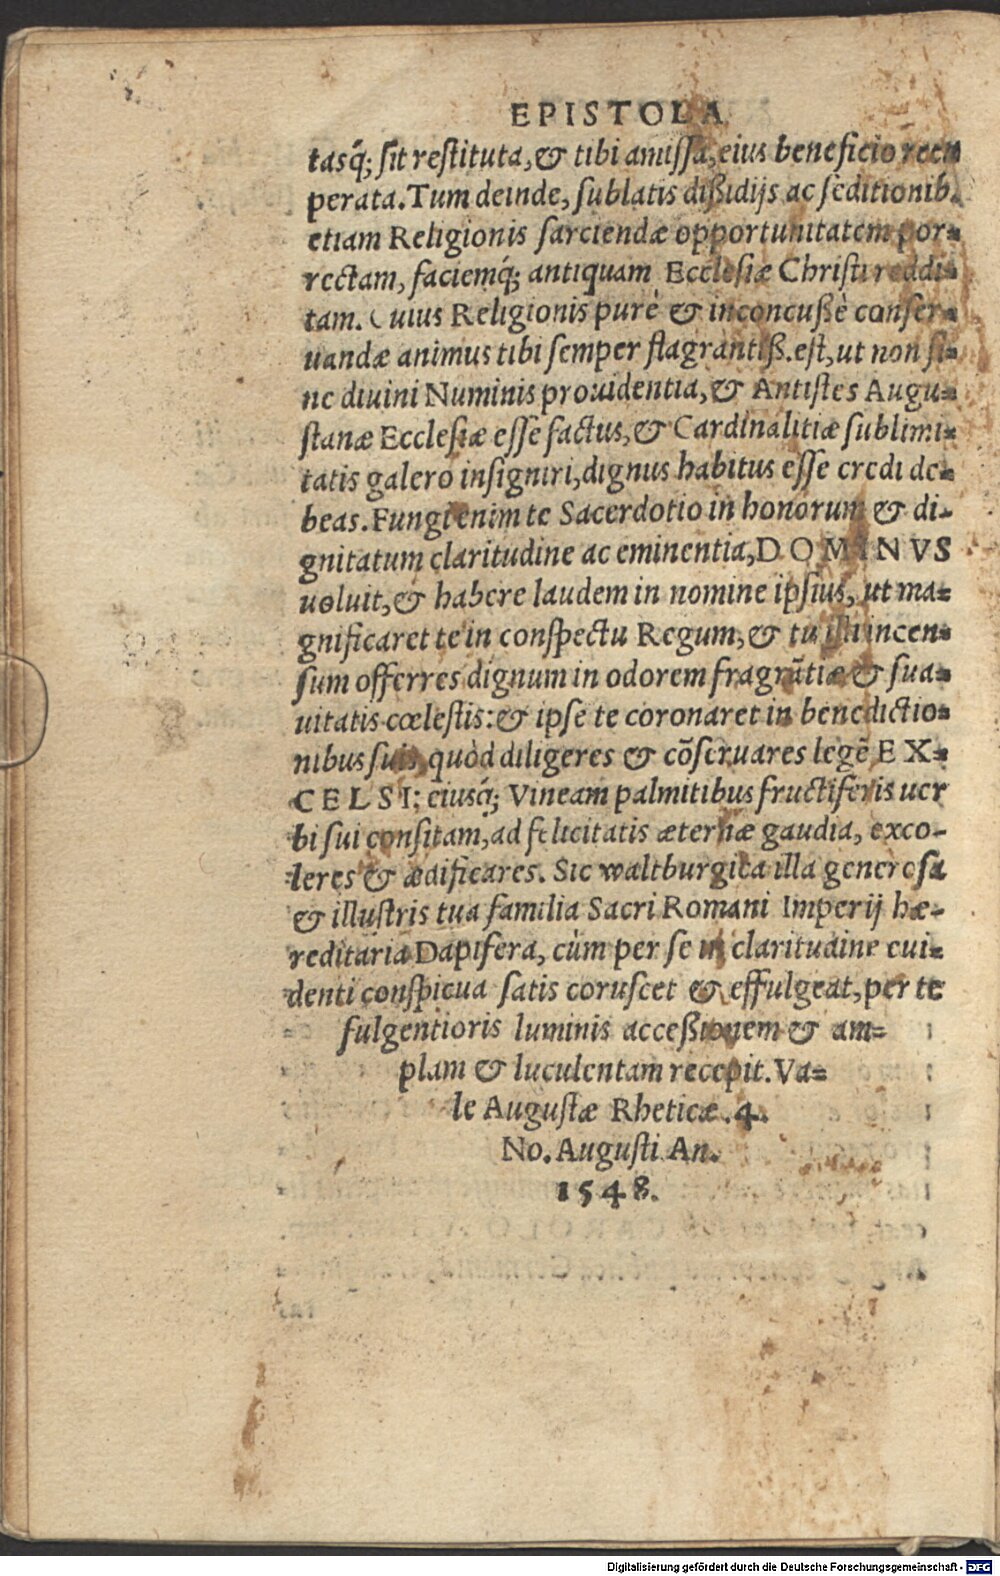 EPISTOLA
tasq́; sit restituta, & tibi amissa, eius beneficio recu
perata. Tum deinde, sublatis dißidijs ac seditionib.
etiam Religionis sarciendæ opportunitatem por=
rectam, faciemq́; antiquam Ecclesiæ Christi reddi=
tam. Cuius Religionis purè & inconcußè conser=
uandæ animus tibi semper flagrantiß. est, ut non si=
ne diuini Numinis prouidentia, & Antistes Augu=
stanæ Ecclesiæ esse factus, & Cardinalitiæ sublimi=
tatis galero insigniri, dignus habitus esse credi de=
beas. Fungi enim te Sacerdotio in honorum & di-
gnitatum claritudine ac eminentia, DOMINVS
uoluit, & habere laudem in nomine ipsius, ut ma=
gnificaret te in conspectu Regum, & tu illi incen=
sum offerres dignum in odorem fragrātiæ & sua=
uitatis cœlestis: & ipse te coronaret in benedictio=
nibus suis, quòd diligeres & cōseruares legē EX=
CELSI; eiusq́; Vineam palmitibus fructiferis uer
bi sui consitam, ad felicitatis æternæ gaudia, exco-
leres & ædificares. Sic waltburgica illa generosa
& illustris tua familia Sacri Romani Imperij hæ-
reditaria Dapifera, cùm per se in claritudine eui=
denti conspicua satis coruscet & effulgeat, per te
fulgentioris luminis acceßionem & am=
plam & luculentam recepit. Va=
le Augustæ Rheticæ. 4.
No. Augusti An.
1548.
Digitalisierung gefördert durch die Deutsche Forschungsgemeinschaft - DFG